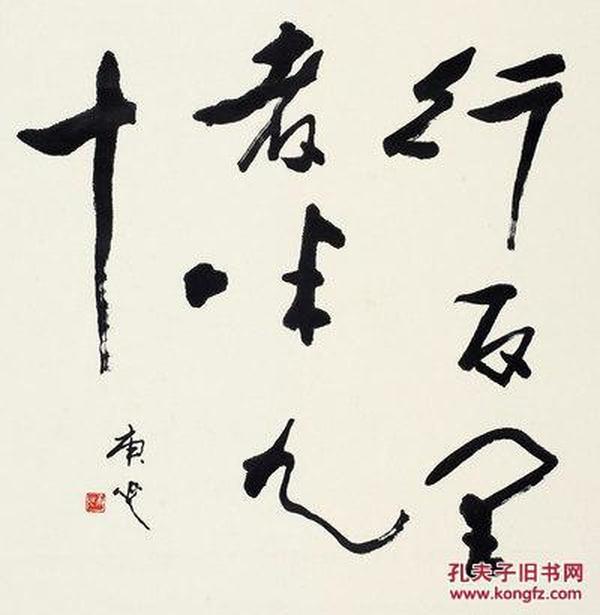 行百里
者半九
十
庚
孔夫子旧书网
www.kongfz.com